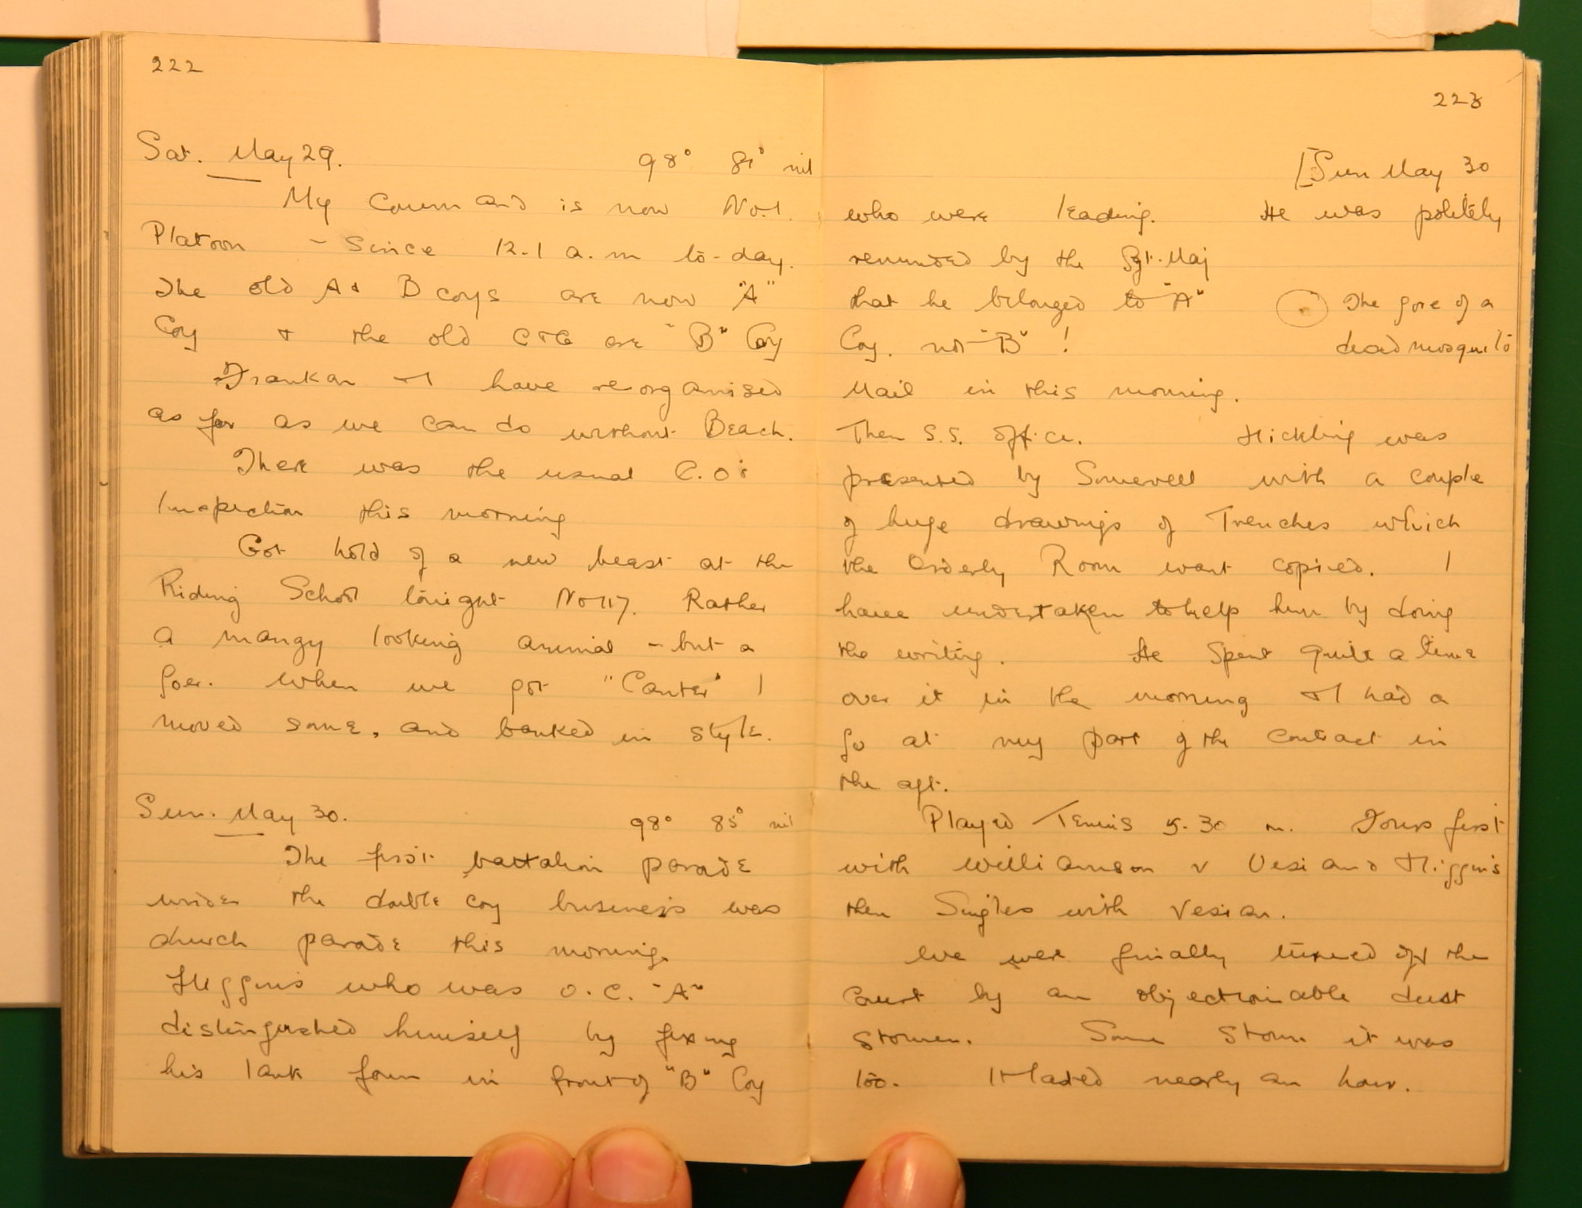 222
Sat. May 29. 98° 81° nil
My Command is now No.1.
Platoon - since 12.1 a.m to-day.
The old A & B coys are now "A"
Coy & the old C & G are "B" Coy
& I have reorganised
as far as we can do without Beach.
There was the usual C.O's
Inspection this morning
Got hold of a new beast at the
Riding School tonight No 117. Rather
a mangy looking animal - but a
goer. When we got "Canter" I
moved some, and banked in style.
Sun. May 30. 98° 85° nil
The first battalion parade
under the double coy business was
church parade this morning.
Higgins who was O.C. "A"
distinguished himself by fixing
his lank form in front of "B" Coy
223
[Sun May 30
who were leading. He was politely
reminded by the Sgt. Maj
that he belonged to "A"
Coy. not "B" !
The gore of a
dead mosquito
Mail in this morning.
Then S.S. office. Hickling was
presented by Somervell with a couple
of huge drawings of Trenches which
the Orderly Room want copied. I
have undertaken to help him by doing
the writing. He spent quite a time
over it in the morning & I had a
go at my part of the contract in
the aft.
Played Tennis 5.30 m. Fours first
with Williamson v Vesian & Higgins
then Singles with Vesian.
We were finally turned off the
Court by an objectionable dust
storm. Some storm it was
too. It lasted nearly an hour.